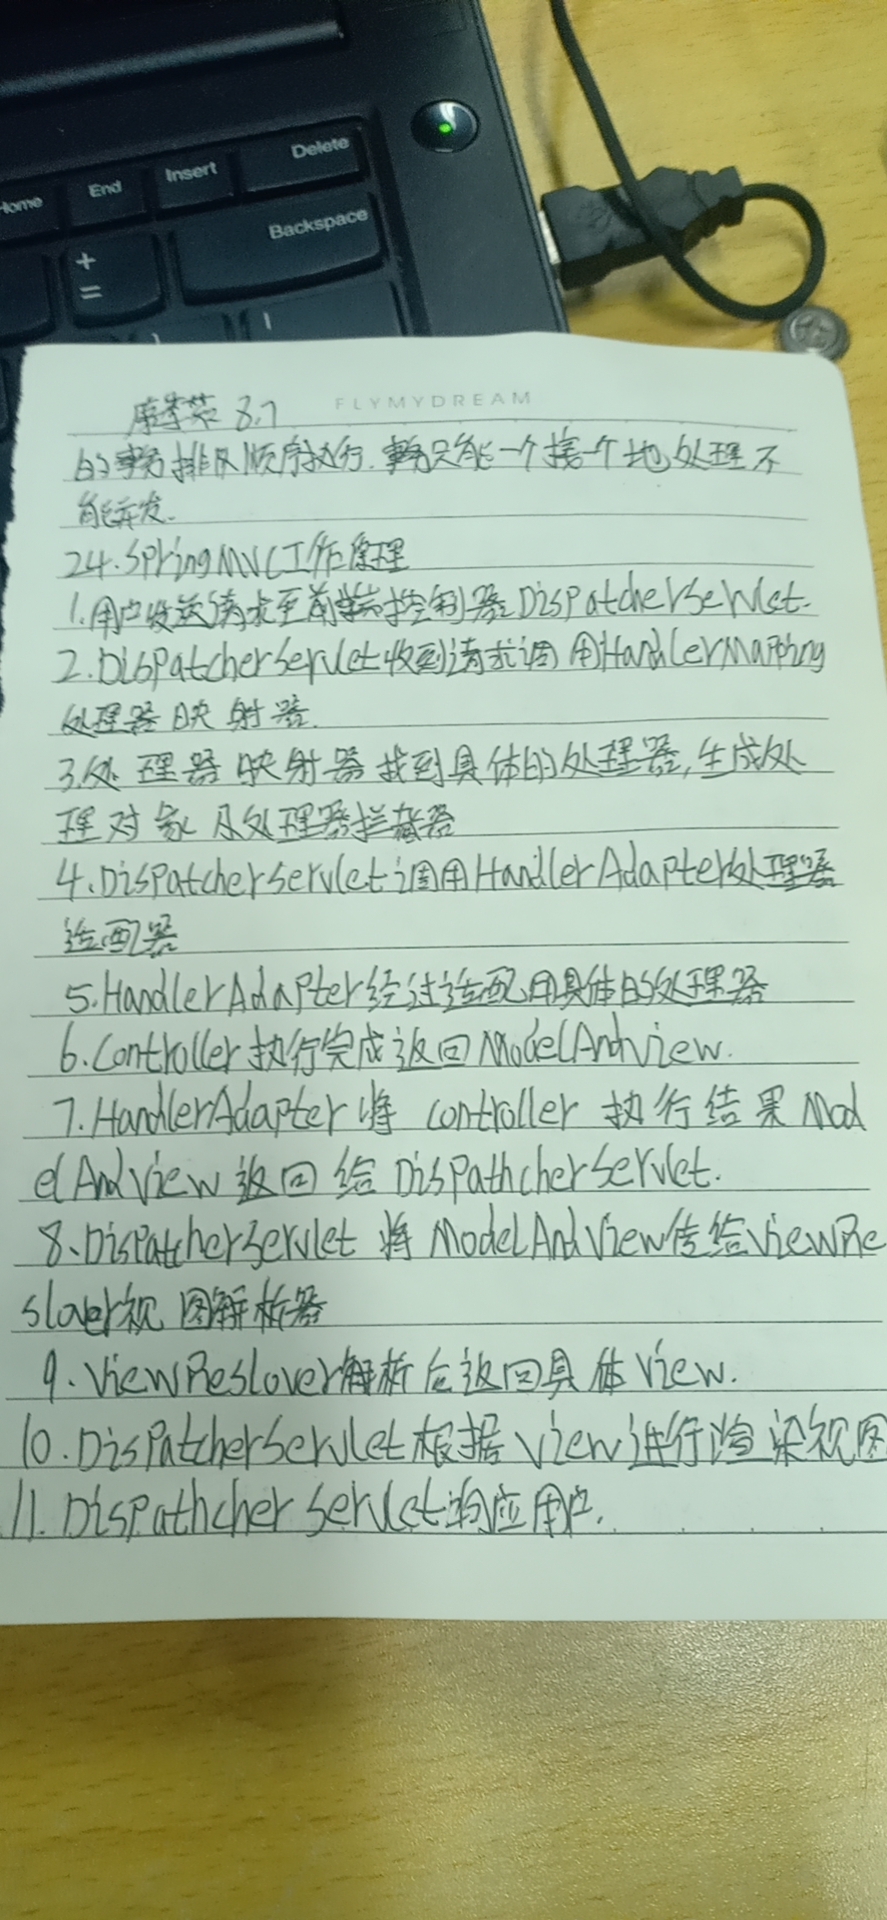 Home End Insert Delete
Backspace
+
=
FLYMYDREAM
8.7
的事务排队顺序执行.事务只能一个接一个地处理不
能并发.
24.SpringMVC工作原理
1.用户发送请求至前端控制器DispatcherServlet.
2.DispatcherServlet收到请求调用HandlerMapping
处理器映射器.
3.处理器映射器找到具体的处理器,生成处
理对象及处理器拦截器
4.DispatcherServlet调用HandlerAdapter处理器
适配器
5.HandlerAdapter经过适配用具体的处理器
6.Controller执行完成返回ModelAndView.
7.HandlerAdapter将controller执行结果Mod
elAndView返回给DisPathcherServlet.
8.DispatcherServlet将ModelAndView传给ViewRe
slover视图解析器
9.ViewReslover解析后返回具体View.
10.DispatcherServlet根据View进行渲染视图
11.DispathcherServlet响应用户.